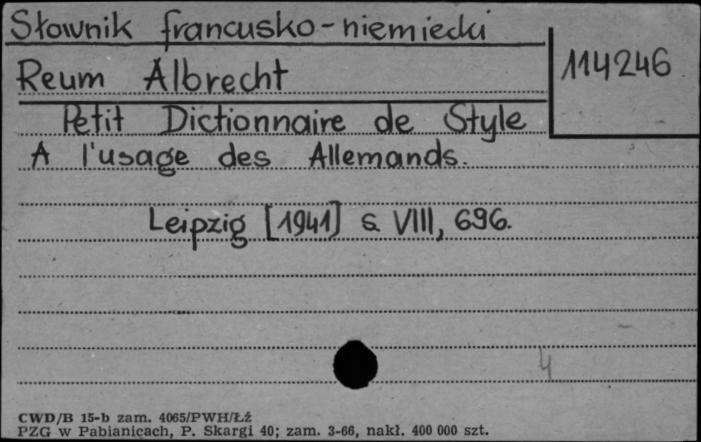 Słownik francusko-niemiecki
114246
Reum Albrecht
Petit Dictionnaire de Style
A l'usage des Allemands.
Leipzig [1941] s. VIII, 696.
4
CWD/B 15-b zam. 4065/PWH/Łź
PZG w Pabianicach, P. Skargi 40; zam. 3-66, nakł. 400 000 szt.